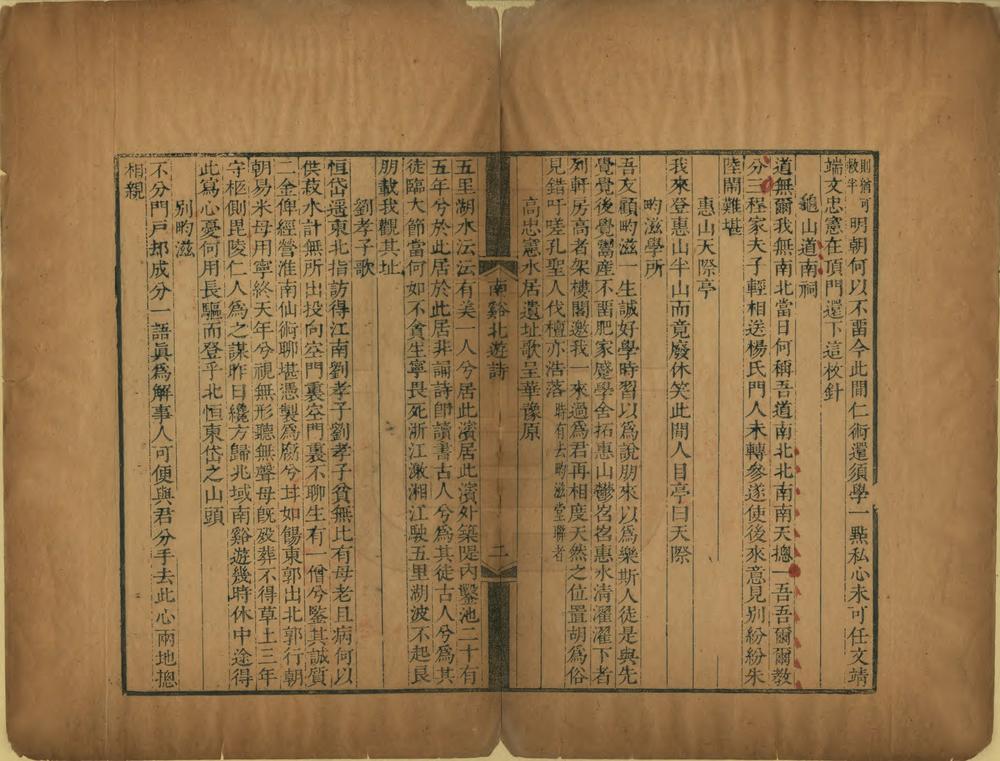 則猶可救半　明朝何以不畱今此間仁術還須學一點私心未可任文靖
端文忠憲在頂門還下這枚針
龜山道南祠
道無爾我無南北當日何稱吾道南北北南南天摠一吾吾爾爾教
分三程家夫子輕相送楊氏門人未轉參遂使後來意見别紛紛朱
陸鬧難堪
惠山天際亭
我來登惠山半山而竟廢休笑此間人目亭曰天際
畇滋學所
吾友顧畇滋一生誠好學時習以爲說朋來以爲樂斯人徒是與先
覺覺後覺鬻產不畱肥家塾學舍拓惠山鬱岧岧惠水清濯濯下者
列軒房高者架樓閣邀我一來過爲君再相度天然之位置胡爲俗
見錯吁嗟孔聖人伐檀亦浩落時有去畇滋堂聯者
高忠憲水居遺址歌呈華豫原
南谿北遊詩
二
五里湖水沄沄有美一人兮居此濱居此濱外築隄内鑿池二十有
五年兮於此居於此居非誦詩卽讀書古人兮爲其徒古人兮爲其
徒臨大節當何如不貪生寧畏死浙江潄湘江駛五里湖波不起艮
朋載我觀其址
劉孝子歌
恒岱遥東北指訪得江南劉孝子劉孝子貧無比有母老且病何以
供菽水計無所出投向空門裏空門裏不聊生有一僧兮鑒其誠質
二金俾經營淮南仙術聊堪憑製爲腐兮甘如餳東郭出北郭行朝
朝易米母用寧終天年兮視無形聽無聲母旣歿葬不得草土三年
守柩側毘陵仁人爲之謀昨日纔方歸兆域南谿遊幾時休中途得
此寫心憂何用長驅而登乎北恒東岱之山頭
别畇滋
不分門戸郤成分一語眞爲解事人可便與君分手去此心兩地摠
相親